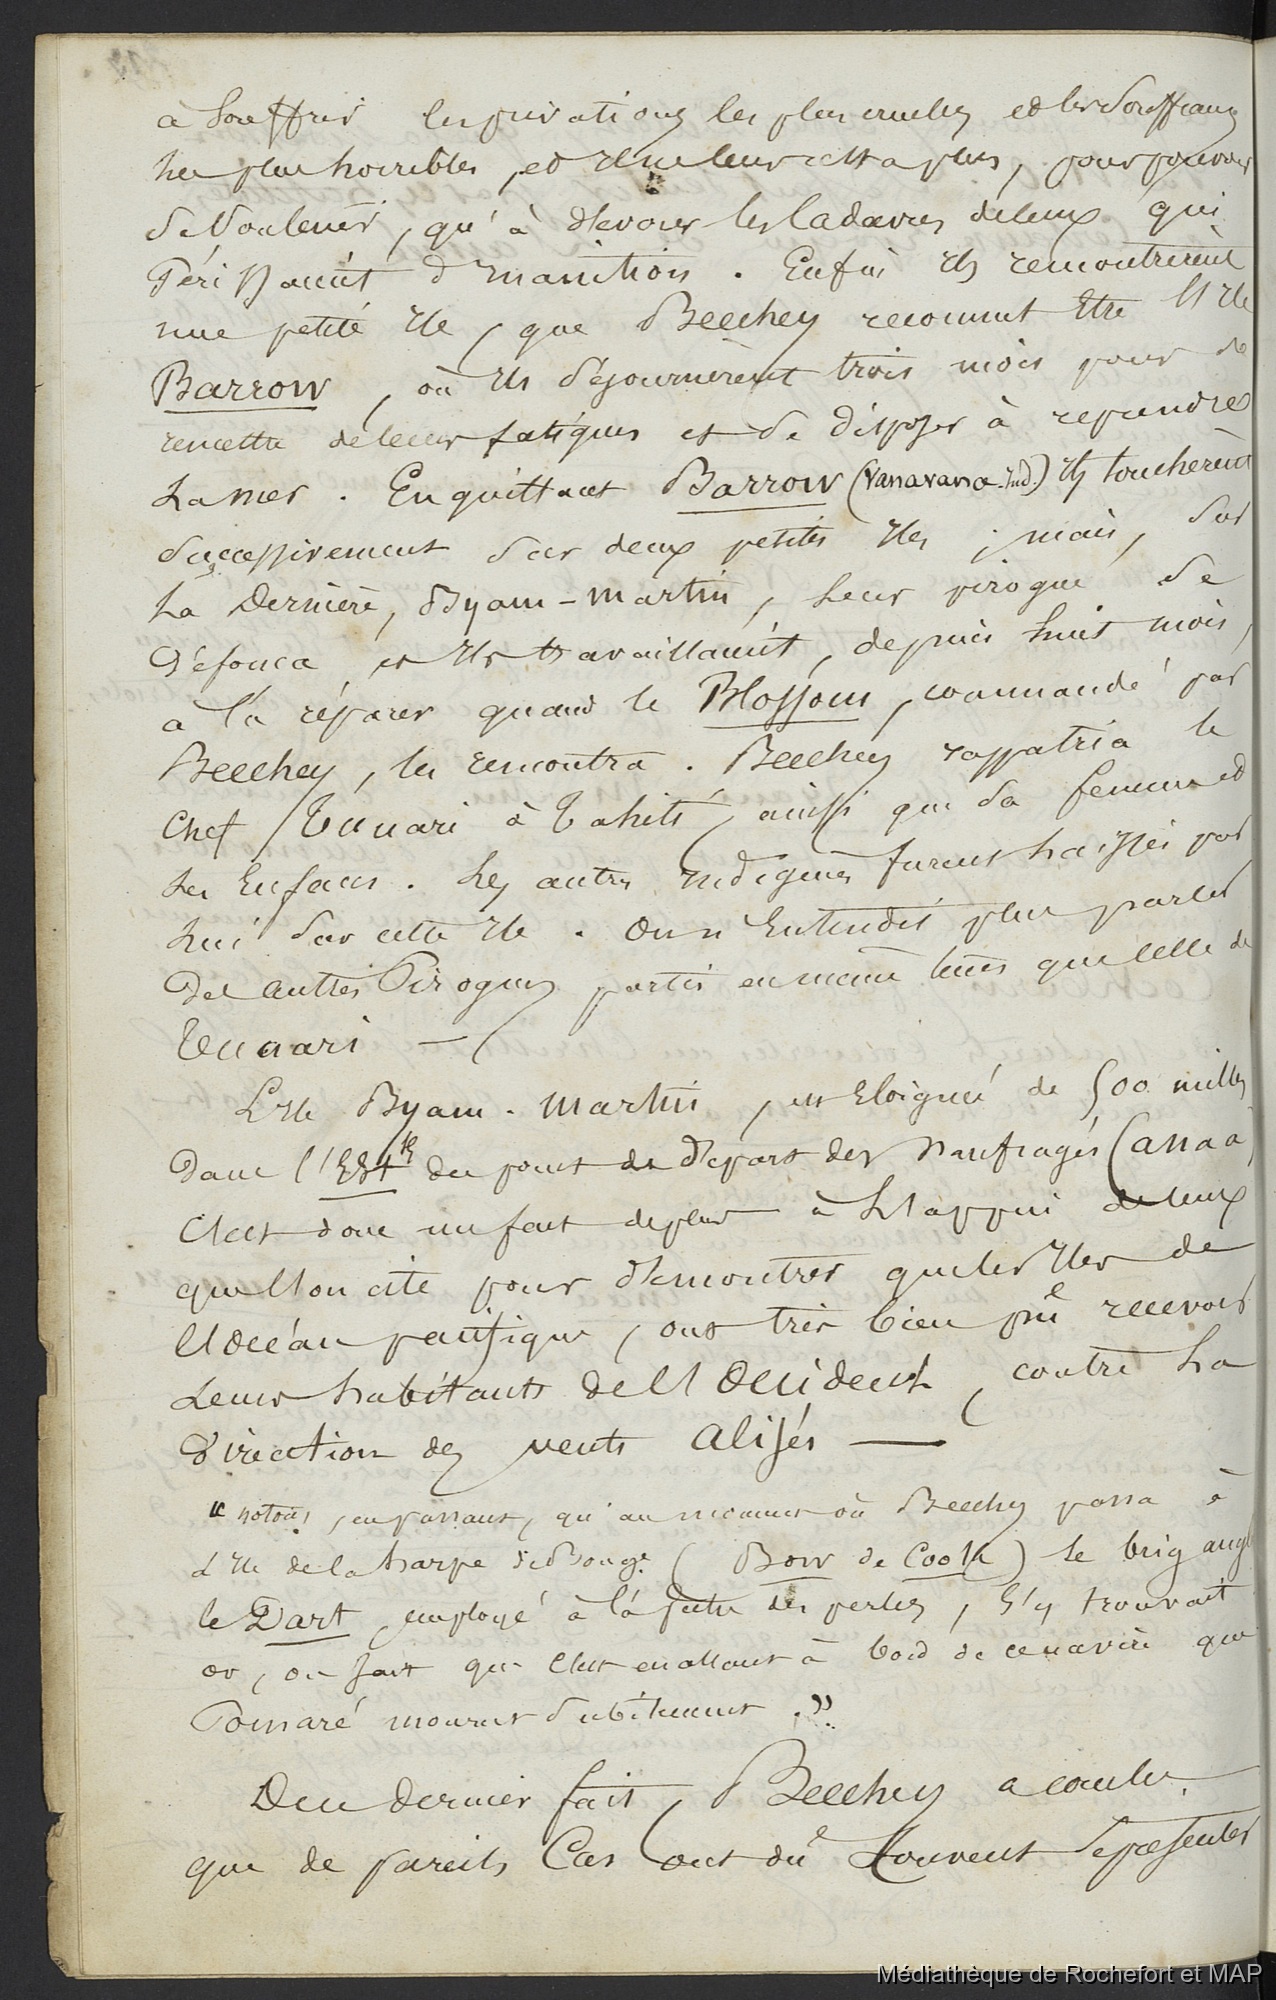 à souffrir les privations les plus cruelles et les souffrances
les plus horribles, et il ne leur resta plus, pour pouvoir
se soutenir, qu'à dévorer les cadavres de ceux qui
périssaient d'inanition. Enfin ils rencontrèrent
une petite île, que Beechey reconnut être l'île
Barrow, où ils séjournèrent trois mois pour se
remettre de leurs fatigues et se disposer à reprendre
la mer. En quittant Barrow (Vanavana. Ind.) ils touchèrent
successivement sur deux petites îles; mais, sur
la dernière, Byam-Martin, leur pirogue se
défonça et ils travaillaient, depuis huit mois,
à la réparer quand le Blossom, commandé par
Beechey, les rencontra. Beechey rappatria le
chef Tunari à Tahiti, ainsi que sa femme et
ses enfans. Les autres indigènes furent laissés par
lui sur cette île. On n'entendit plus parler
des autres Pirogues partis en même tems que celle de
Tunari —
L'île Byam-Martin, est éloignée de 500 milles
dans l'Est du point de départ des naufragés (Anaa)
C'est donc un fait de plus à l'appui de ceux
que l'on cite pour démontrer que les îles de
l'océan pacifique, ont très bien pu recevoir
leurs habitants de l'Occident, contre la
direction des vents alisés —
"notons, en passant, qu'au moment où Beechey passa à
l'île de la harpe de Boug. (Bow de Cook) le brig angl
le Dart, employé à la pêche des perles, s'y trouvait
or, on sait que c'est en allant à bord de ce navire que
Pomaré mourut subitement."
De ce dernier fait, Beechey a conclu
que de pareils cas ont dû souvent se présenter
Médiathèque de Rochefort et MAP